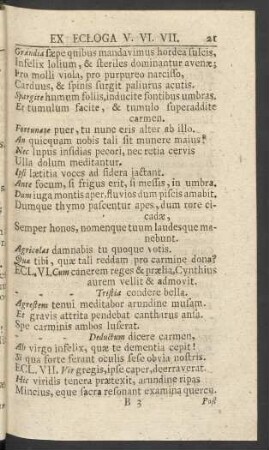 EX ECLOGA V. VI. VII. 21
Grandia sæpe quibus mandavimus hordea sulcis,
Infelix lolium, & steriles dominantur avenæ;
Pro molli viola, pro purpureo narcisso,
Carduus, & spinis surgit paliurus acutis.
Spargite humum foliis, inducite fontibus umbras.
Et tumulum facite, & tumulo superaddite
carmen.
Fortunate puer, tu nunc eris alter ab illo.
An quicquam nobis tali sit munere maius?
Nec lupus insidias pecori, nec retia cervis
Ulla dolum meditantur.
Ipsi lætitia voces ad sidera jactant.
Ante focum, si frigus erit, si messis, in umbra.
Dum juga montis aper, fluvios dum piscis amabit,
Dumque thymo pascentur apes, dum rore ci-
cadæ,
Semper honos, nomenque tuum laudesque ma-
nebunt.
Agricolas damnabis tu quoque votis.
Quæ tibi, quæ tali reddam pro carmine dona?
ECL. VI. Cum canerem reges & prælia, Cynthius
aurem vellit & admovit.
- - Tristia condere bella.
Agrestem tenui meditabor arundine musam.
Et gravis attrita pendebat cantharus ansa.
Spe carminis ambos luserat.
- - Deductum dicere carmen,
Ah virgo infelix, quæ te dementia cepit!
Si qua forte ferant oculis sese obvia nostris.
ECL. VII. Vir gregis, ipse caper, deerraverat.
Hic viridis tenera prætexit, arundine ripas
Mincius, eque sacra resonant examina quercu.
B 3 Post